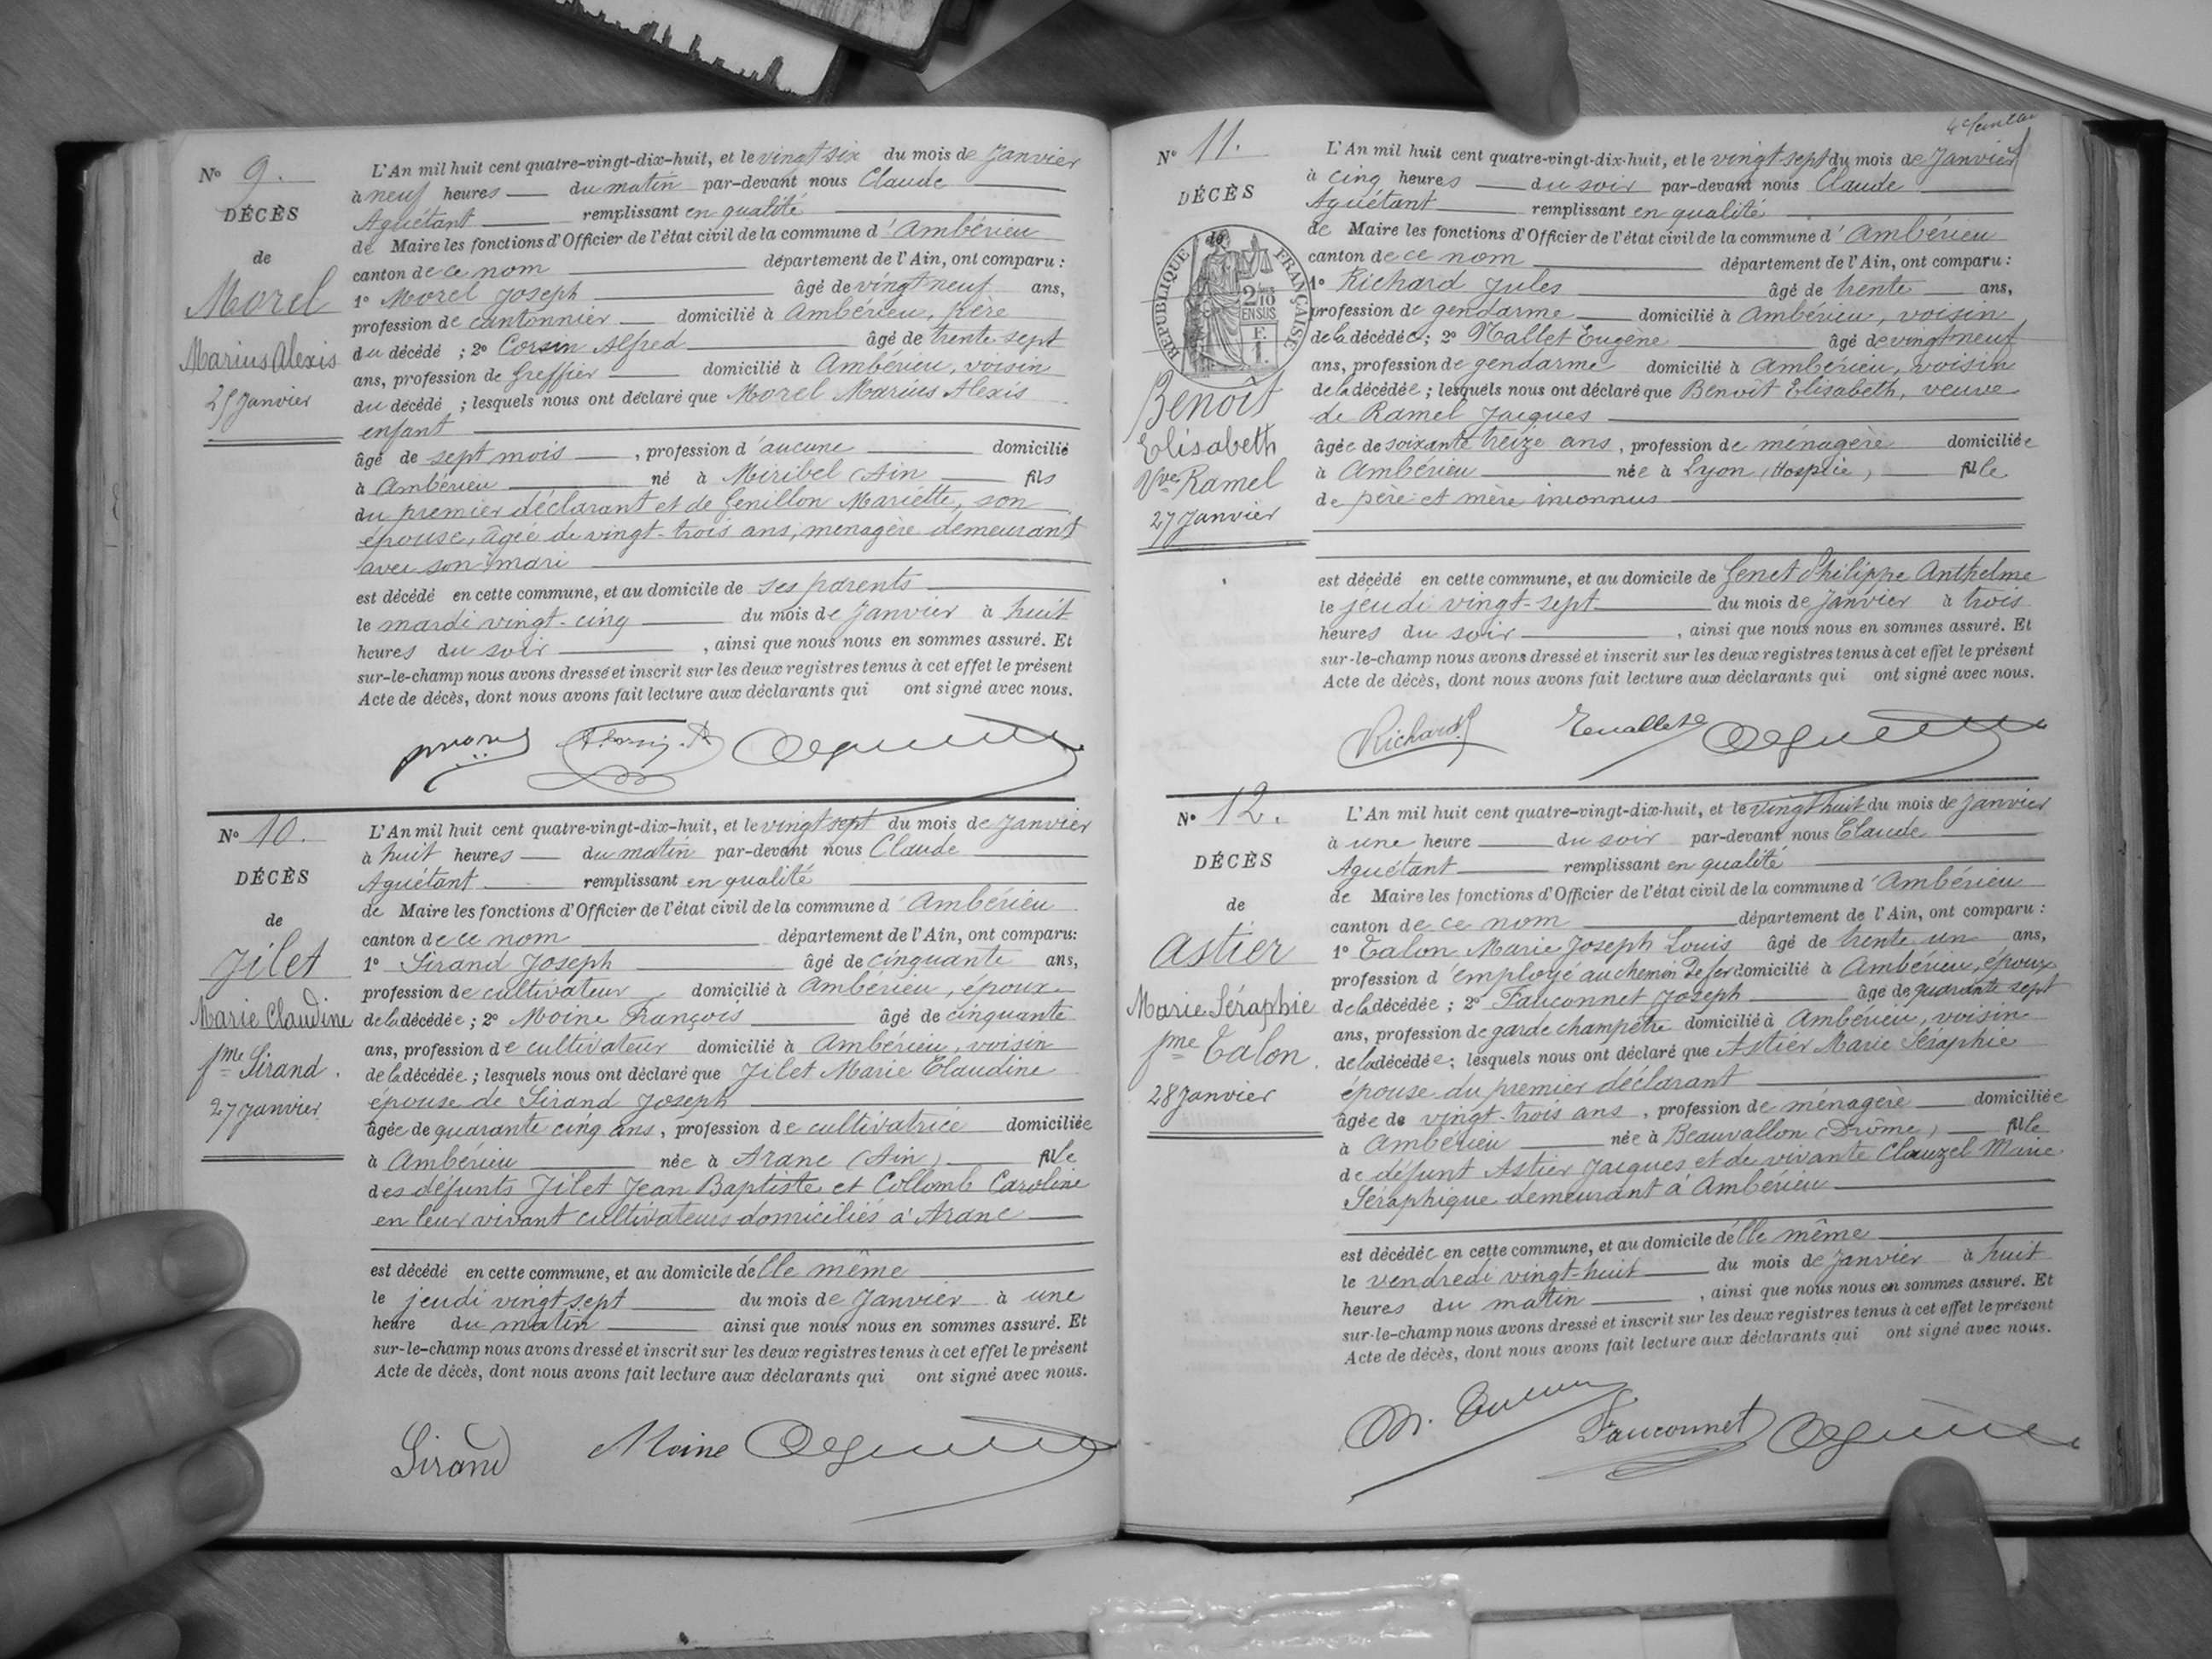 N° 9.
DÉCÈS
de
Morel
Marius Alexis
25 Janvier
L'An mil huit cent quatre-vingt-dix-huit, et le vingt six du mois de Janvier
à neuf heures du matin par-devant nous Claude
Aguétant remplissant en qualité
de Maire les fonctions d'Officier de l'état civil de la commune d'Ambérieu
canton de ce nom département de l'Ain, ont comparu :
1° Morel Joseph âgé de vingt neuf ans,
profession de cantonnier domicilié à Ambérieu, Père
du décédé ; 2° Corsin Alfred âgé de trente sept
ans, profession de Greffier domicilié à Ambérieu, voisin
du décédé ; lesquels nous ont déclaré que Morel Marius Alexis
enfant
âgé de sept mois , profession d'aucune domicilié
à Ambérieu né à Miribel (Ain fils
du premier déclarant et de Genillon Mariette, son
épouse, âgée de vingt-trois ans, menagère demeurant
avec son mari
est décédé en cette commune, et au domicile de ses parents
le mardi vingt-cinq du mois de Janvier à huit
heures du soir , ainsi que nous nous en sommes assuré. Et
sur-le-champ nous avons dressé et inscrit sur les deux registres tenus à cet effet le présent
Acte de décès, dont nous avons fait lecture aux déclarants qui ont signé avec nous.
N° 10.
DÉCÈS
de
Jilet
Marie Claudine
fme Sirand.
27 Janvier
L'An mil huit cent quatre-vingt-dix-huit, et le vingt sept du mois de Janvier
à huit heures du matin par-devant nous Claude
Aguétant remplissant en qualité
de Maire les fonctions d'Officier de l'état civil de la commune d'Ambérieu
canton de ce nom département de l'Ain, ont comparu:
1° Sirand Joseph âgé de cinquante ans,
profession de cultivateur domicilié à Ambérieu, époux
de la décédée ; 2° Moine François âgé de cinquante
ans, profession de cultivateur domicilié à Ambérieu, voisin
de la décédée ; lesquels nous ont déclaré que Jilet Marie Claudine
épouse de Sirand Joseph
âgée de quarante cinq ans, profession de cultivatrice domiciliée
à Ambérieu née à Aranc (Ain) fille
des défunts Jilet Jean Baptiste et Collomb Caroline
en leur vivant cultivateurs domiciliés à Aranc
est décédé en cette commune, et au domicile d'elle même
le jeudi vingt sept du mois de Janvier à une
heure du matin ainsi que nous nous en sommes assuré. Et
sur-le-champ nous avons dressé et inscrit sur les deux registres tenus à cet effet le présent
Acte de décès, dont nous avons fait lecture aux déclarants qui ont signé avec nous.
Sirand Moine
N° 11.
DÉCÈS
de
RÉPUBLIQUE FRANÇAISE
2/10
EN SUS
Benoît
Elisabeth
Vve Ramel
27 Janvier
L'An mil huit cent quatre-vingt-dix-huit, et le vingt sept du mois de Janvier
à cinq heures du soir par-devant nous Claude
Aguétant remplissant en qualité
de Maire les fonctions d'Officier de l'état civil de la commune d'Ambérieu
canton de ce nom département de l'Ain, ont comparu :
1° Richard Jules âgé de trente ans,
profession de gendarme domicilié à Ambérieu, voisin
de la décédée; 2° Mallet Eugène âgé de vingt neuf
ans, profession de gendarme domicilié à Ambérieu, voisin
de la décédée ; lesquels nous ont déclaré que Benoît Elisabeth, veuve
de Ramel Jacques
âgée de soixante treize ans , profession de ménagère domiciliée
à Ambérieu née à Lyon (Hospice) fille
de père et mère inconnus
est décédé en cette commune, et au domicile de Genet Philippe Anthelme
le jeudi vingt-sept du mois de Janvier à trois
heures du soir , ainsi que nous nous en sommes assuré. Et
sur-le-champ nous avons dressé et inscrit sur les deux registres tenus à cet effet le présent
Acte de décès, dont nous avons fait lecture aux déclarants qui ont signé avec nous.
Richard
N° 12.
DÉCÈS
de
Astier
Marie Séraphie
fme Talon.
28 Janvier
L'An mil huit cent quatre-vingt-dix-huit, et le vingt huit du mois de Janvier
à une heure du soir par-devant nous Claude
Aguétant remplissant en qualité
de Maire les fonctions d'Officier de l'état civil de la commune d'Ambérieu
canton de ce nom département de l'Ain, ont comparu :
1° Talon Marie Joseph Louis âgé de trente un ans,
profession d'employé au chemin de fer domicilié à Ambérieu, époux
de la décédée ; 2° Fauconnet Joseph âgé de quarante sept
ans, profession de garde champêtre domicilié à Ambérieu, voisin
de la décédée; lesquels nous ont déclaré que Astier Marie Séraphie
épouse du premier déclarant
âgée de vingt-trois ans , profession de ménagère domiciliée
à Ambérieu née à Beauvallon (Drôme) fille
de défunt Astier Jacques et de vivante Clauzel Marie
Séraphique demeurant à Ambérieu
est décédée en cette commune, et au domicile d'elle même
le vendredi vingt-huit du mois de Janvier à huit
heures du matin , ainsi que nous nous en sommes assuré. Et
sur-le-champ nous avons dressé et inscrit sur les deux registres tenus à cet effet le présent
Acte de décès, dont nous avons fait lecture aux déclarants qui ont signé avec nous.
Fauconnet